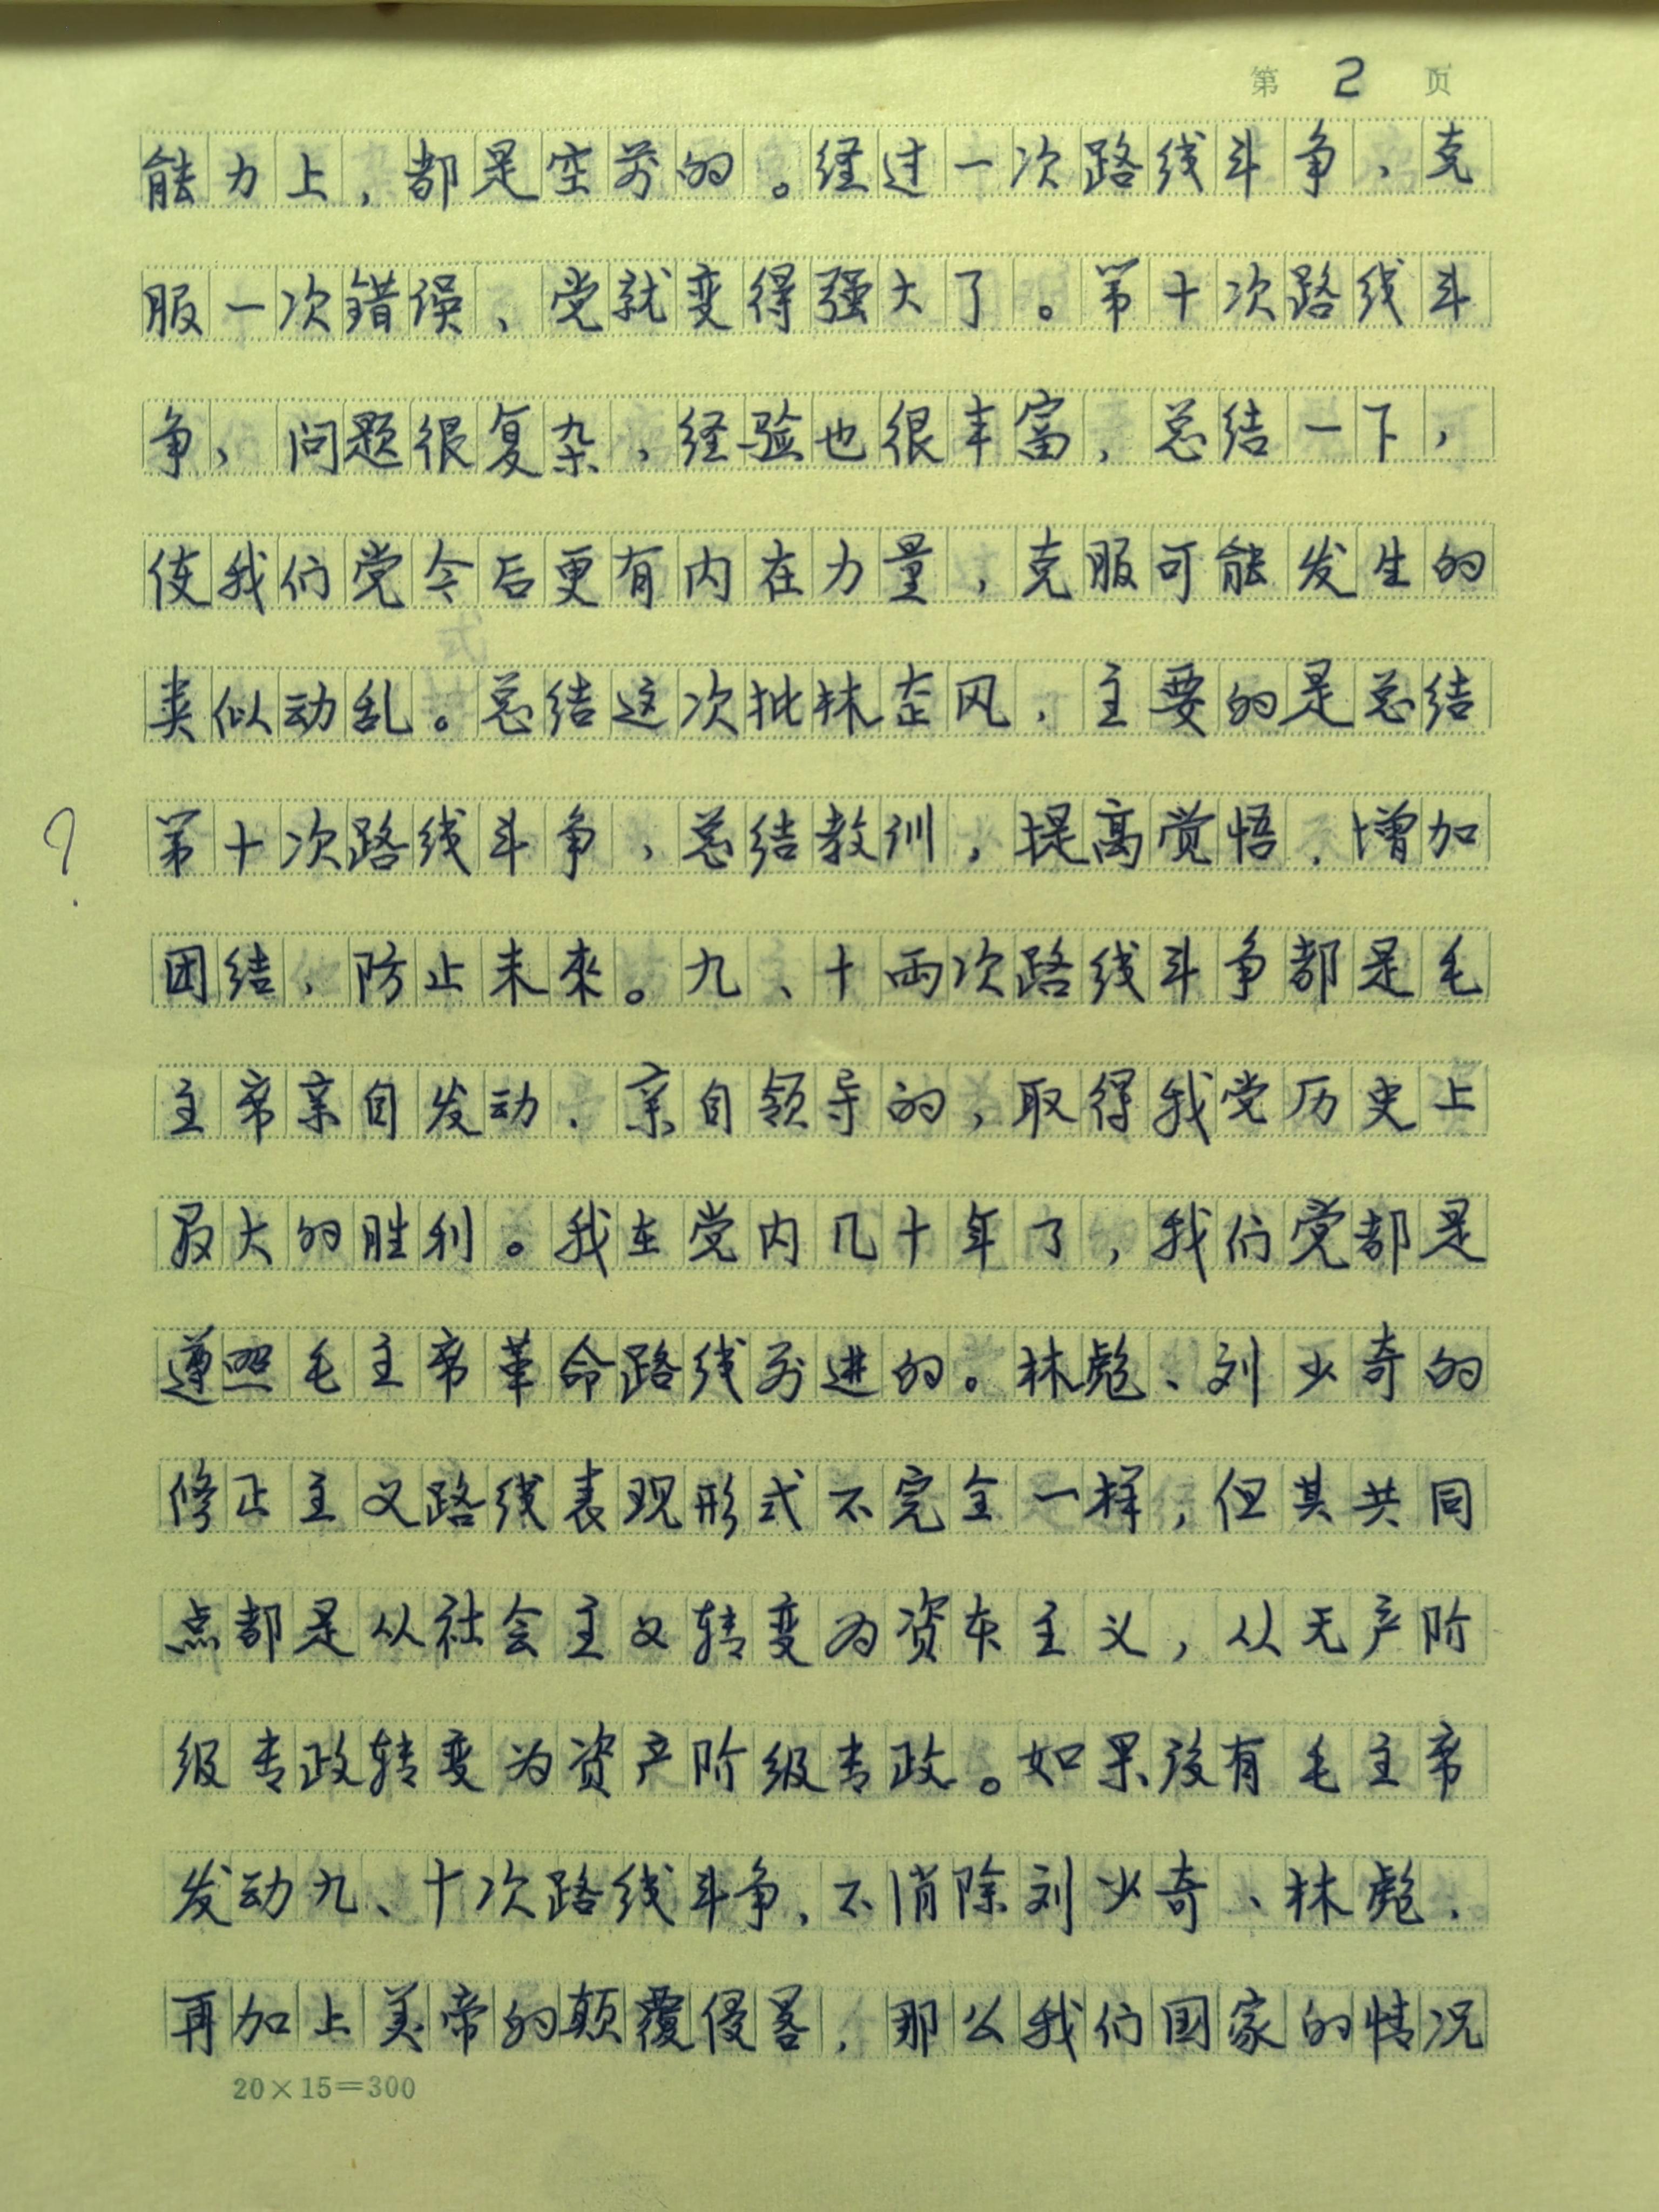 第 2 页
能力上，都是空前的。经过一次路线斗争，克
服一次错误、党就变得强大了。第十次路线斗
争，问题很复杂，经验也很丰富，总结一下，
使我们党今后更有内在力量，克服可能发生的
类似动乱。总结这次批林整风，主要的是总结
?
第十次路线斗争，总结教训，提高觉悟，增加
团结，防止未来。九、十两次路线斗争都是毛
主席亲自发动．亲自领导的，取得我党历史上
最大的胜利。我在党内几十年了，我们党都是
遵照毛主席革命路线前进的。林彪、刘少奇的
修正主义路线表现形式不完全一样，但其共同
点都是从社会主义转变为资本主义，从无产阶
级专政转变为资产阶级专政。如果没有毛主席
发动九、十次路线斗争，不消除刘少奇、林彪，
再加上美帝的颠覆侵畧，那么我们国家的情况
20×15=300